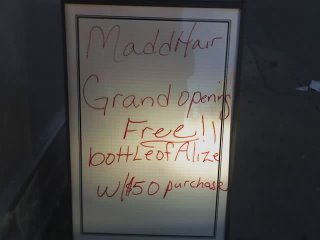 MaddHair
Grand opening
Free!!
bottle of Alize
w/$50 purchase